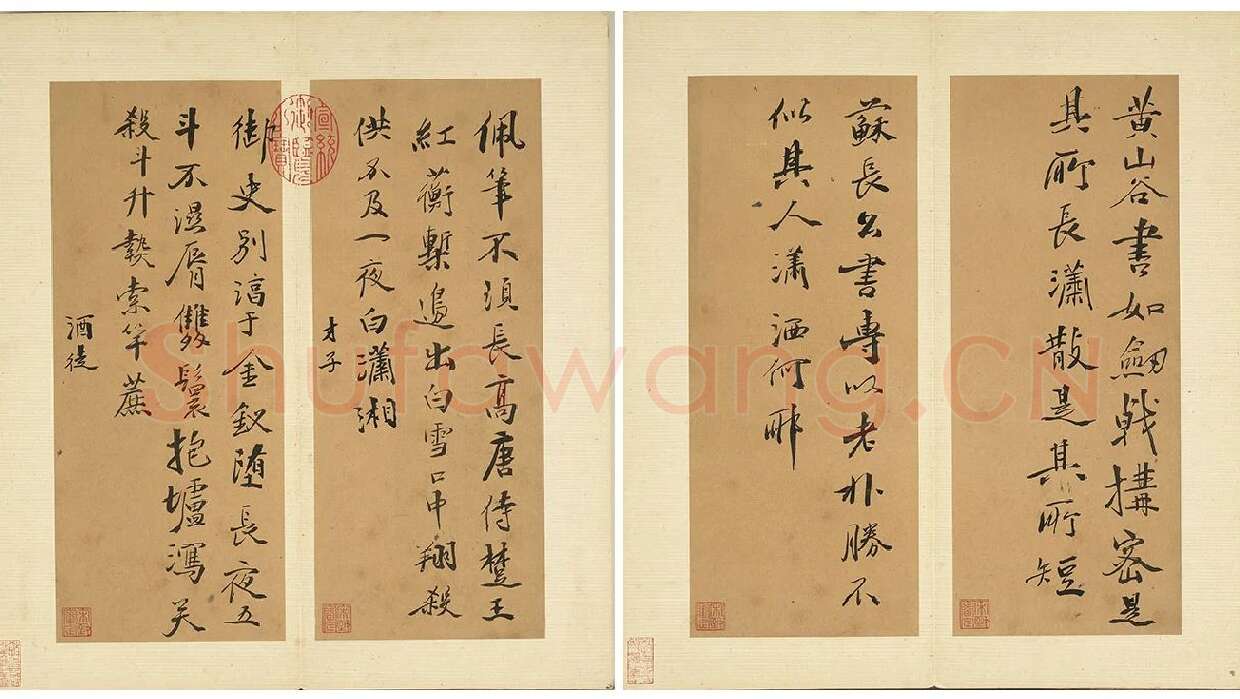 黄山谷書如劔戟搆密是
其所長瀟散是其所短
蘇長公書專以老朴勝不
似其人瀟洒何耶
佩筆不須長高唐侍楚王
紅蘅槧邊出白雪口中翔殺
供不及一夜白瀟湘
才子
御史別湻于金釵墮長夜五
斗不濕脣雙鬟抱壚瀉笑
殺斗升索竿蔗
酒徒
宣統御覽之寶
Shufawang.CN